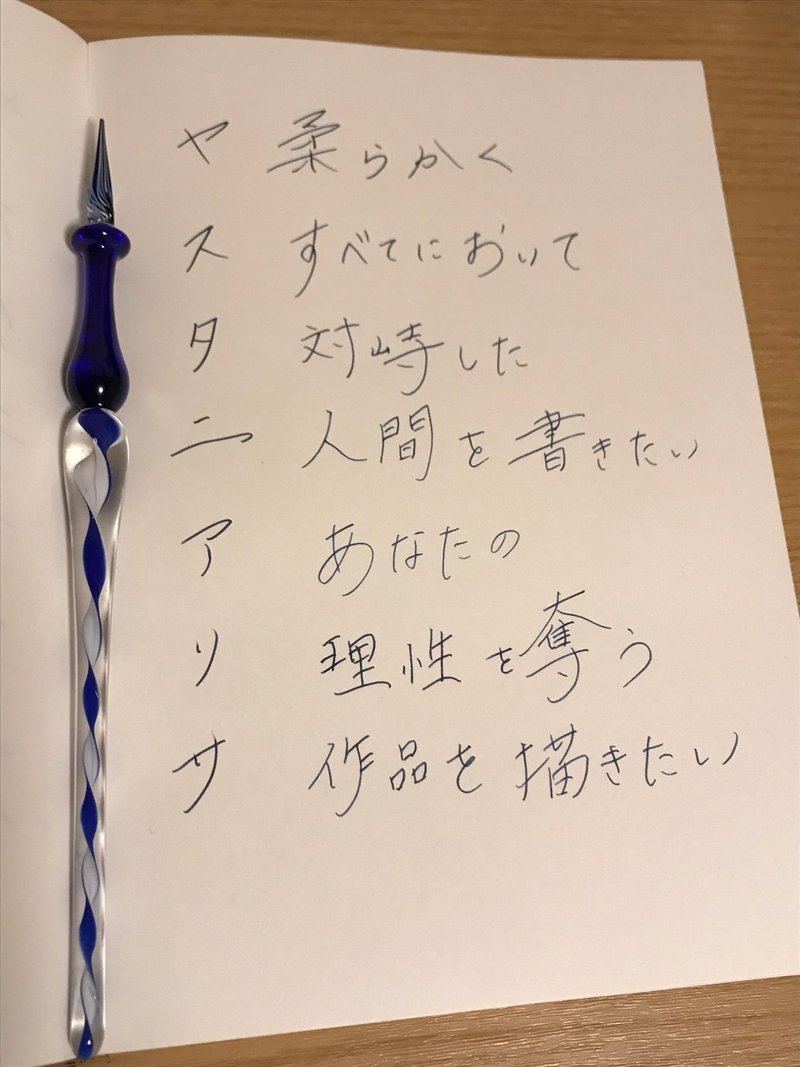 ヤ 柔らかく
ス すべてにおいて
タ 対峙した
ニ 人間を書きたい
ア あなたの
リ 理性を奪う
サ 作品を描きたい